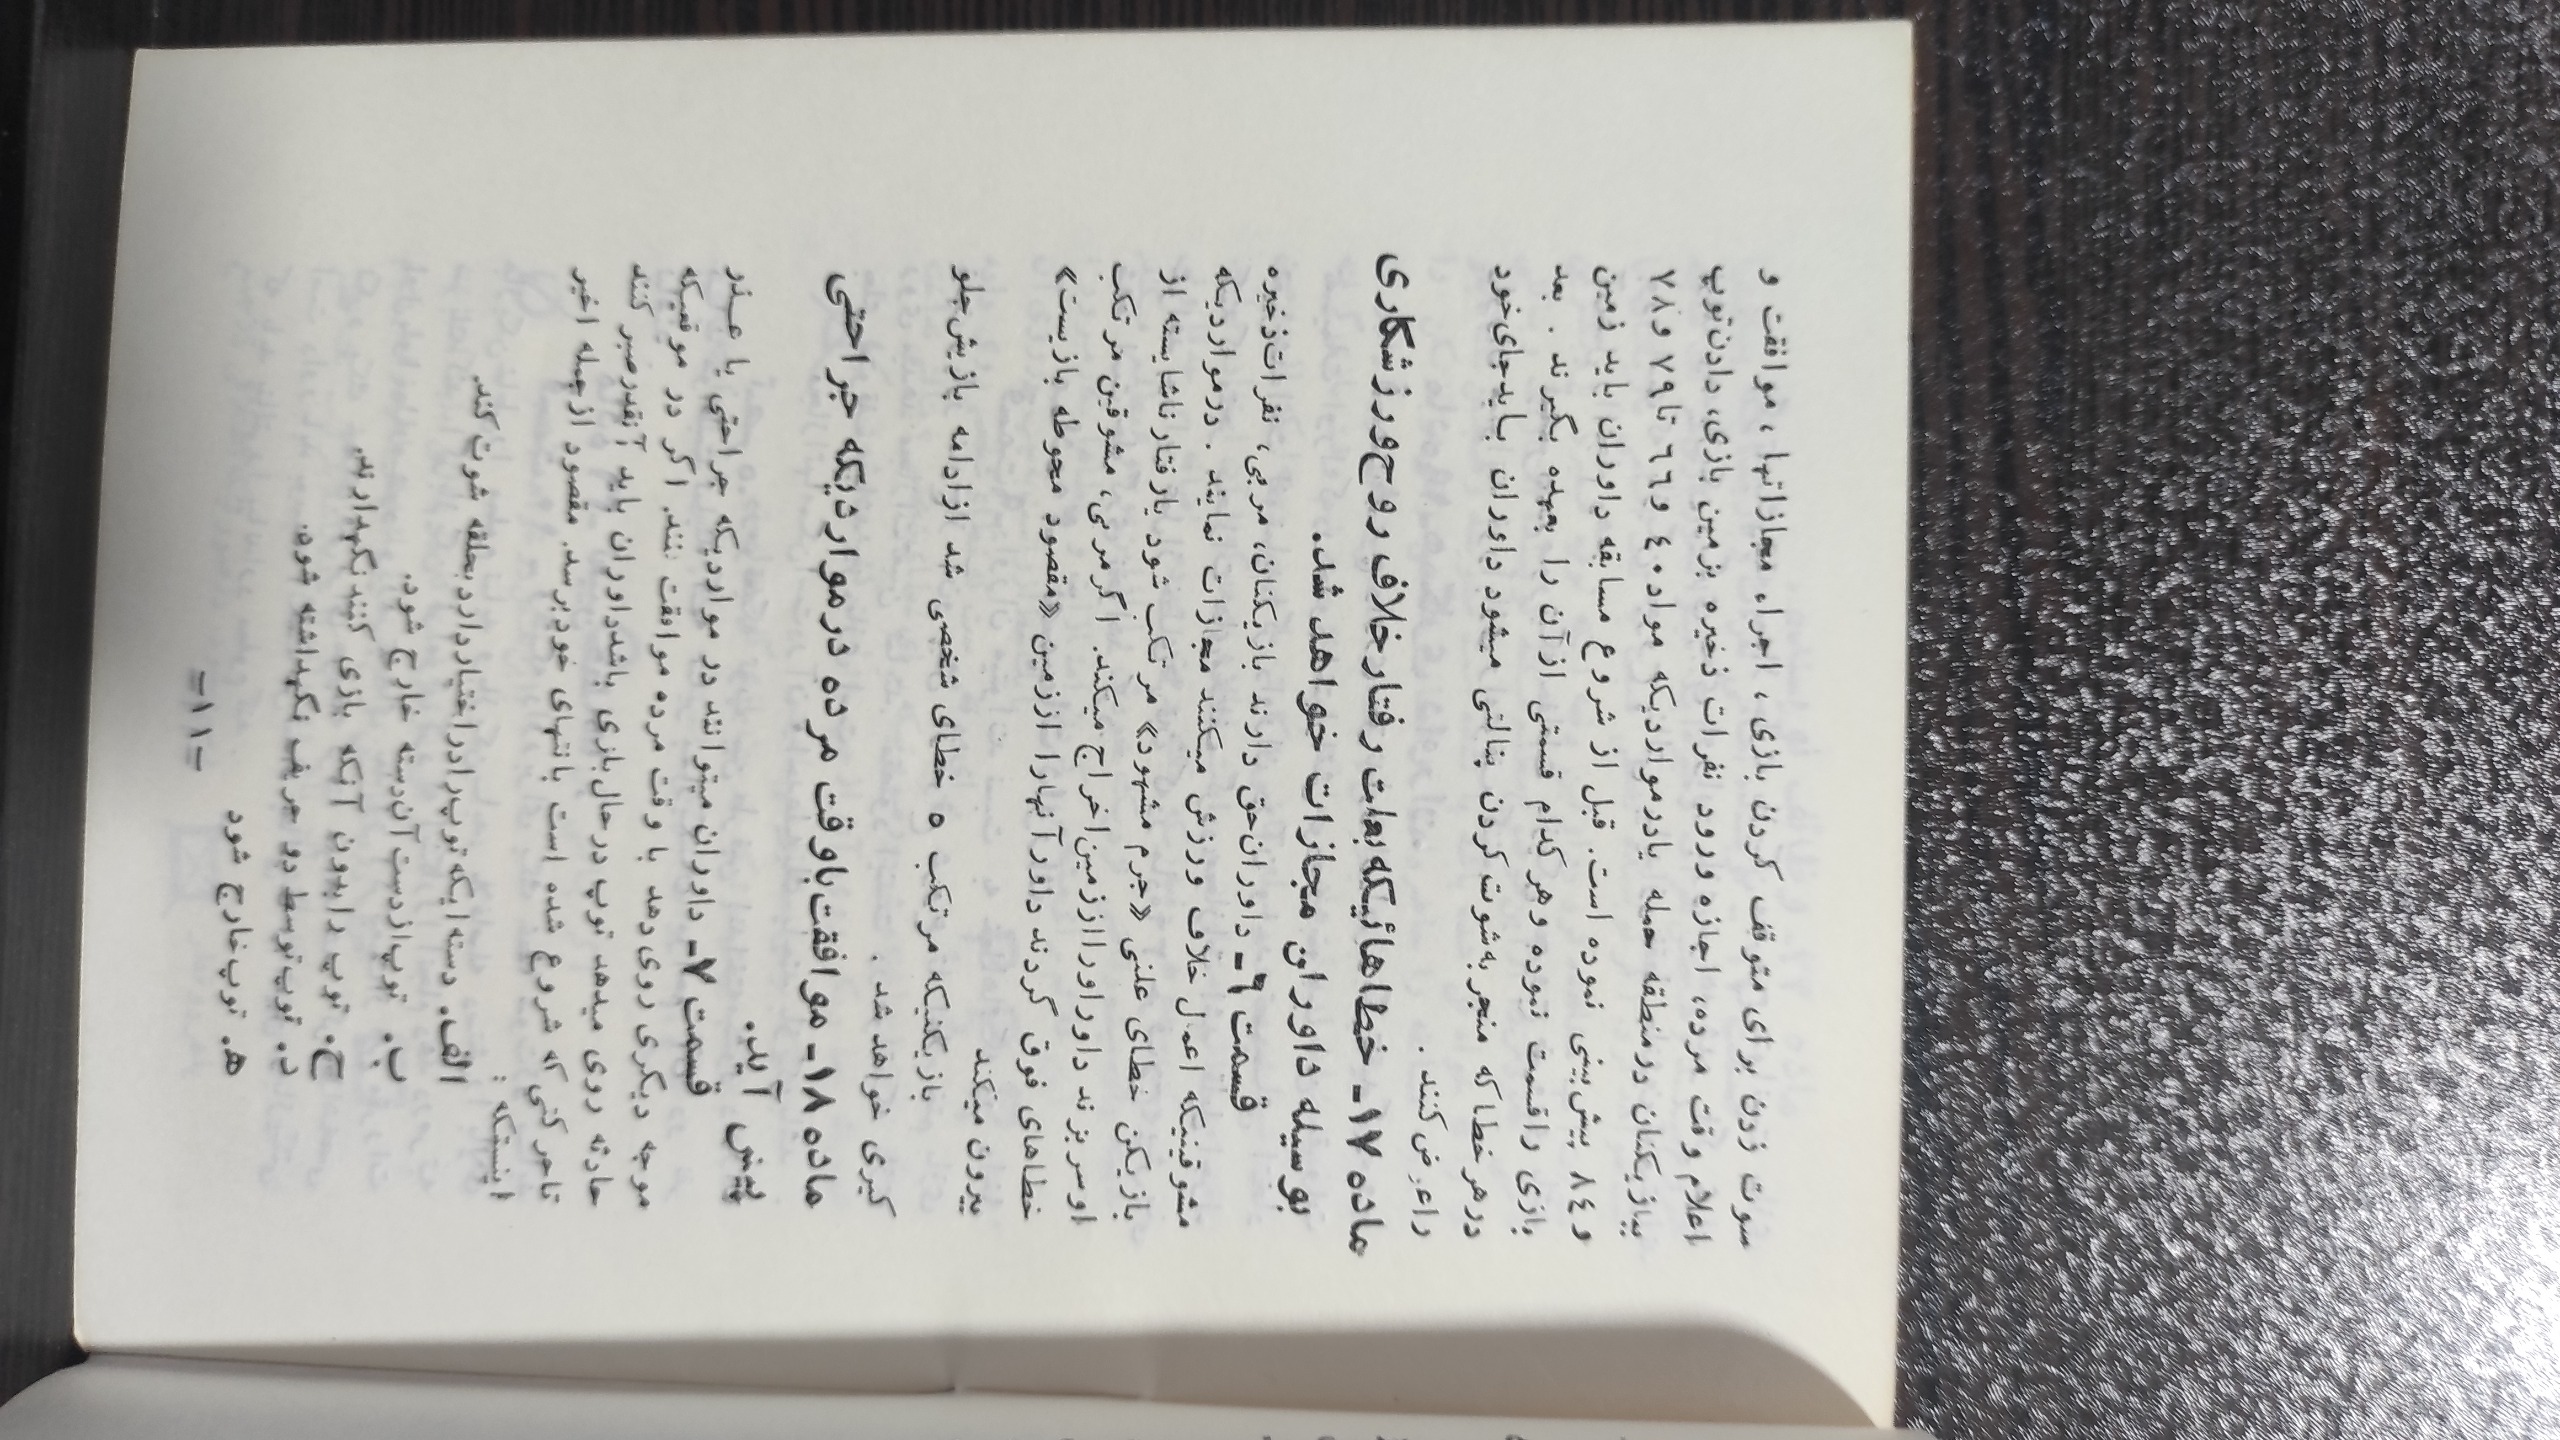 سوت زدن برای متوقف کردن بازی، اجراء مجازاتها، موافقت و
اعلام وقت مرده، اجازه ورود نفرات ذخیره بزمین بازی، دادن توپ
ببازیکنان در منطقه حمله یا در مواردیکه مواد ٤٠ و ٦٦ تا ٧٩ و ٧٨
و ٨٤ پیش‌بینی نموده است. قبل از شروع مسابقه داوران باید زمین
بازی را قسمت نموده و هر کدام قسمتی از آن را بعهده بگیرند. بعد
در هر خطا که منجر به شوت کردن پنالتی میشود داوران باید جای خود
را عوض کنند.
ماده ١٧ـ خطاهائیکه بعلت رفتار خلاف روح ورزشکاری
بوسیله داوران مجازات خواهد شد.
قسمت ٦ـ داوران حق دارند بازیکنان، مربی، نفرات ذخیره
مشوقینیکه اعمال خلاف ورزش میکنند مجازات نمایند. در مواردیکه
بازیکن خطای علنی «جرم مشهود» مرتکب شود یا رفتار ناشایسته از
او سر بزند داور او را از زمین اخراج میکند. اگر مربی، مشوقین مرتکب
خطاهای فوق گردند داور آنها را از زمین «مقصود محوطه بازیست»
بیرون میکند
بازیکنیکه مرتکب ٥ خطای شخصی شد از ادامه بازیش جلو
گیری خواهد شد.
ماده ١٨ـ موافقت با وقت مرده در مواردیکه جراحتی
پیش آید.
قسمت ٧ـ داوران میتوانند در مواردیکه جراحتی یا عذر
موجه دیگری روی دهد با وقت مرده موافقت کنند. اگر در موقعیکه
حادثه روی میدهد توپ در حال بازی باشد داوران باید آنقدر صبر کنند
تا حرکتی که شروع شده است بانتهای خود برسد. مقصود از جمله اخیر
اینستکه:
الف. دسته‌ایکه توپ را در اختیار دارد بحلقه شوت کند.
ب. توپ از دست آن دسته خارج شود.
ج. توپ را بدون آنکه بازی کنند نگهدارند.
د. توپ توسط دو حریف نگهداشته شود.
ه. توپ خارج شود
ـ١١ـ